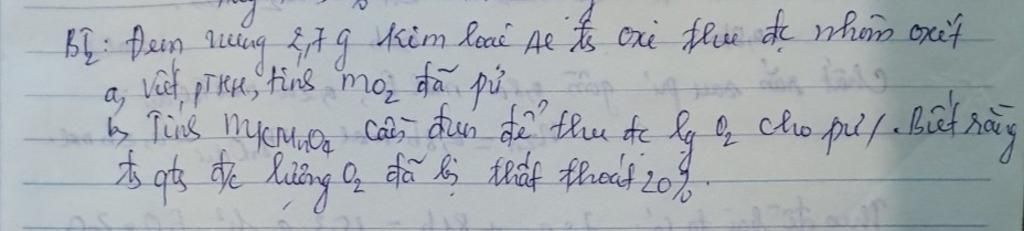 BT2: Đem nung 2,7 g kim loại Al ts oxi thu đc nhôm oxit
a, Viết PTHH, tính mO2 đã pứ
b, Tính mKMnO4 cần đun để thu đc lg O2 cho pứ/. Biết rằng
ts qts đ/c lượng O2 đã bị thất thoát 20%.